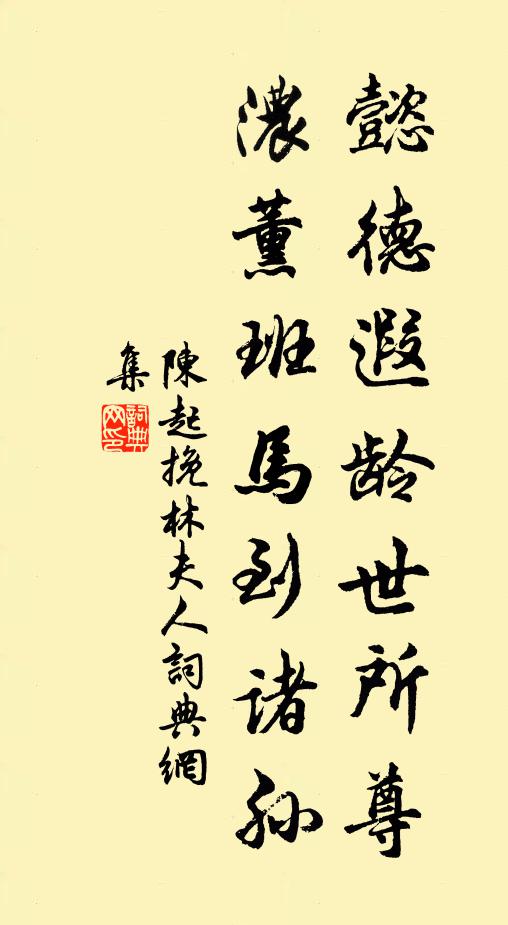 懿德遐龄世所尊
濃薰班馬到诸孙
陳起挽林夫人詞典網
集
詞典网印